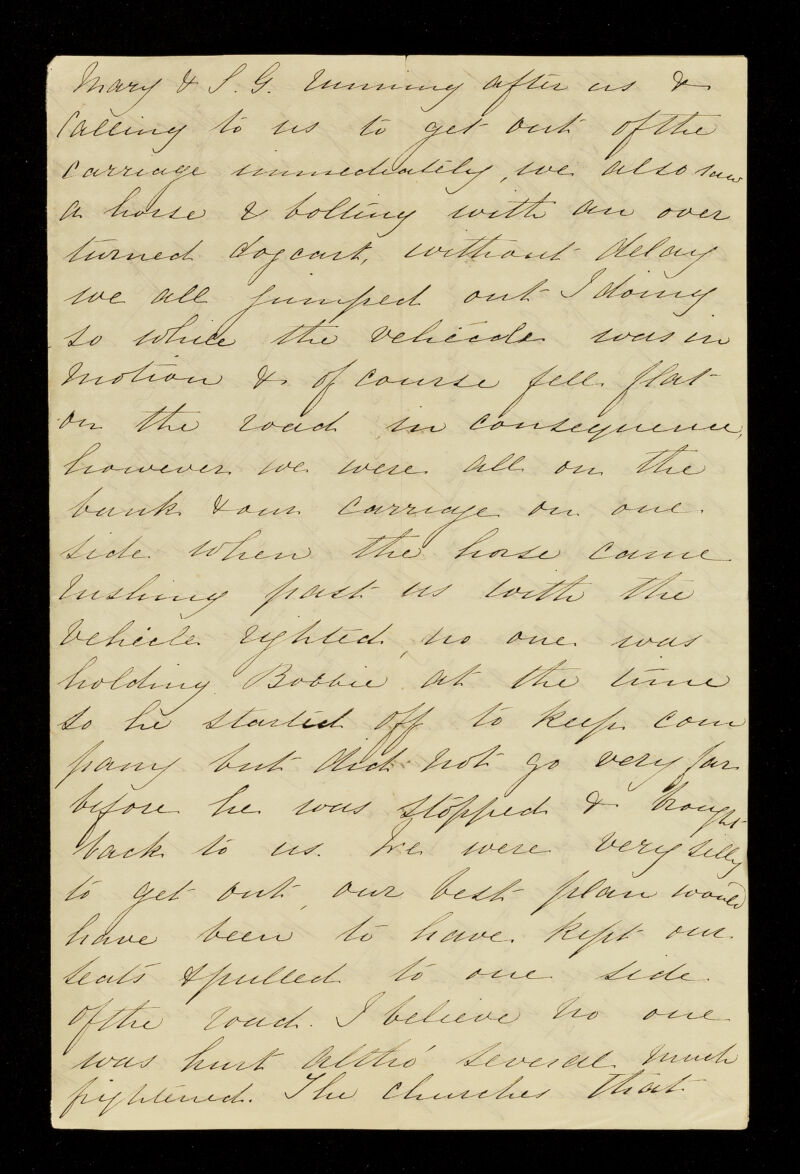 Mary & S. G. running after us &
calling to us to get out of the
carriage immediately, we also saw
a horse & bolting with an over
turned dogcart, without delay
we all jumped out I doing
so while the vehicle was in
motion & of course fell flat
on the road in consequence,
however we were all on the
bank & our carriage on one
side when the horse came
rushing past us with the
vehicle righted, no one was
holding Bobbie at the time
so he started off to keep com
pany but did not go very far
before he was stopped & brought
back to us. We were very silly
to get out, our best plan would
have been to have kept our
seats & pulled to one side
of the road. I believe no one
was hurt altho' several much
frightened. The churches that